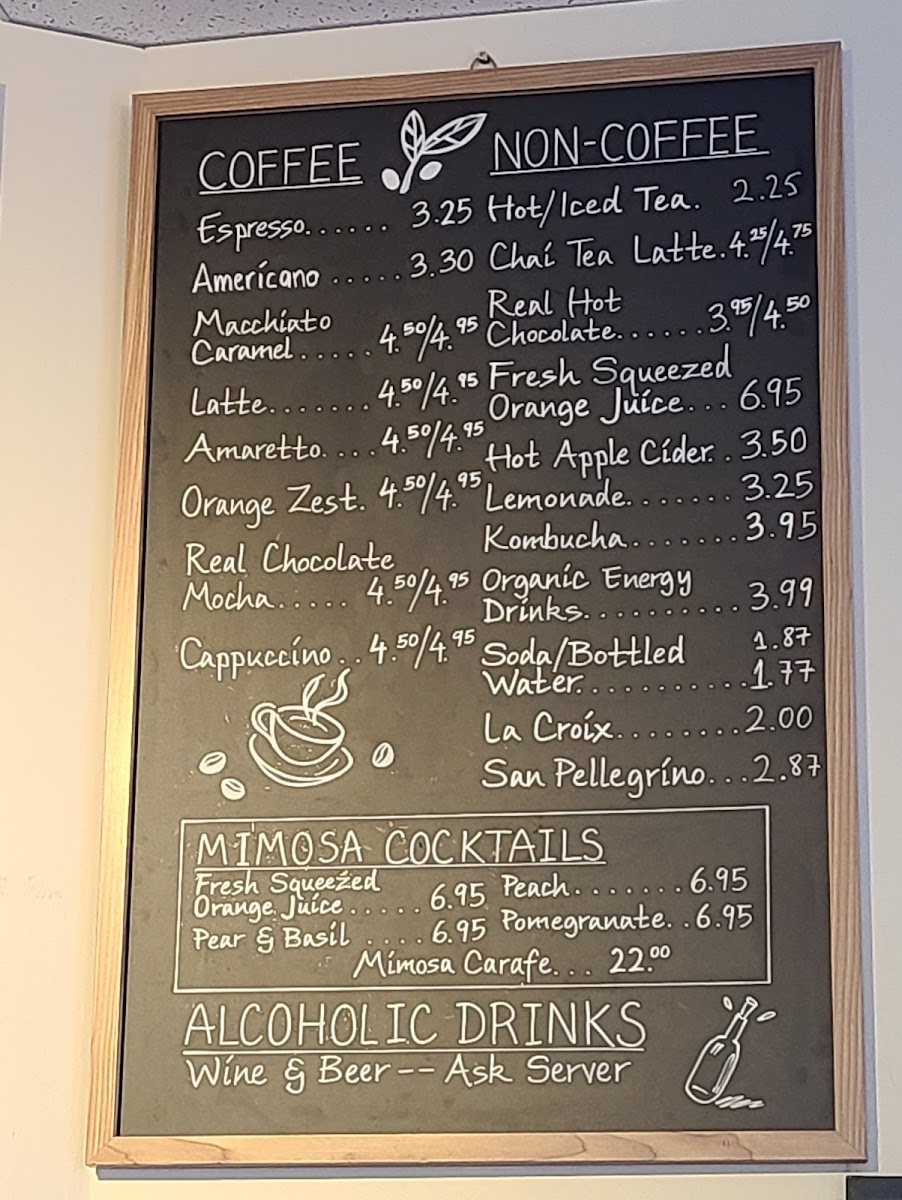 COFFEE
Espresso...... 3.25
Americano ..... 3.30
Macchiato
Caramel..... 4.50/4.95
Latte....... 4.50/4.95
Amaretto.... 4.50/4.95
Orange Zest. 4.50/4.95
Real Chocolate
Mocha..... 4.50/4.95
Cappuccino.. 4.50/4.95
NON-COFFEE
Hot/Iced Tea. 2.25
Chai Tea Latte. 4.25/4.75
Real Hot
Chocolate...... 3.95/4.50
Fresh Squeezed
Orange Juice... 6.95
Hot Apple Cider.. 3.50
Lemonade....... 3.25
Kombucha....... 3.95
Organic Energy
Drinks.......... 3.99
Soda/Bottled 1.87
Water.......... 1.77
La Croix....... 2.00
San Pellegrino... 2.87
MIMOSA COCKTAILS
Fresh Squeezed
Orange Juice ..... 6.95
Pear & Basil .... 6.95
Peach....... 6.95
Pomegranate.. 6.95
Mimosa Carafe... 22.00
ALCOHOLIC DRINKS
Wine & Beer -- Ask Server